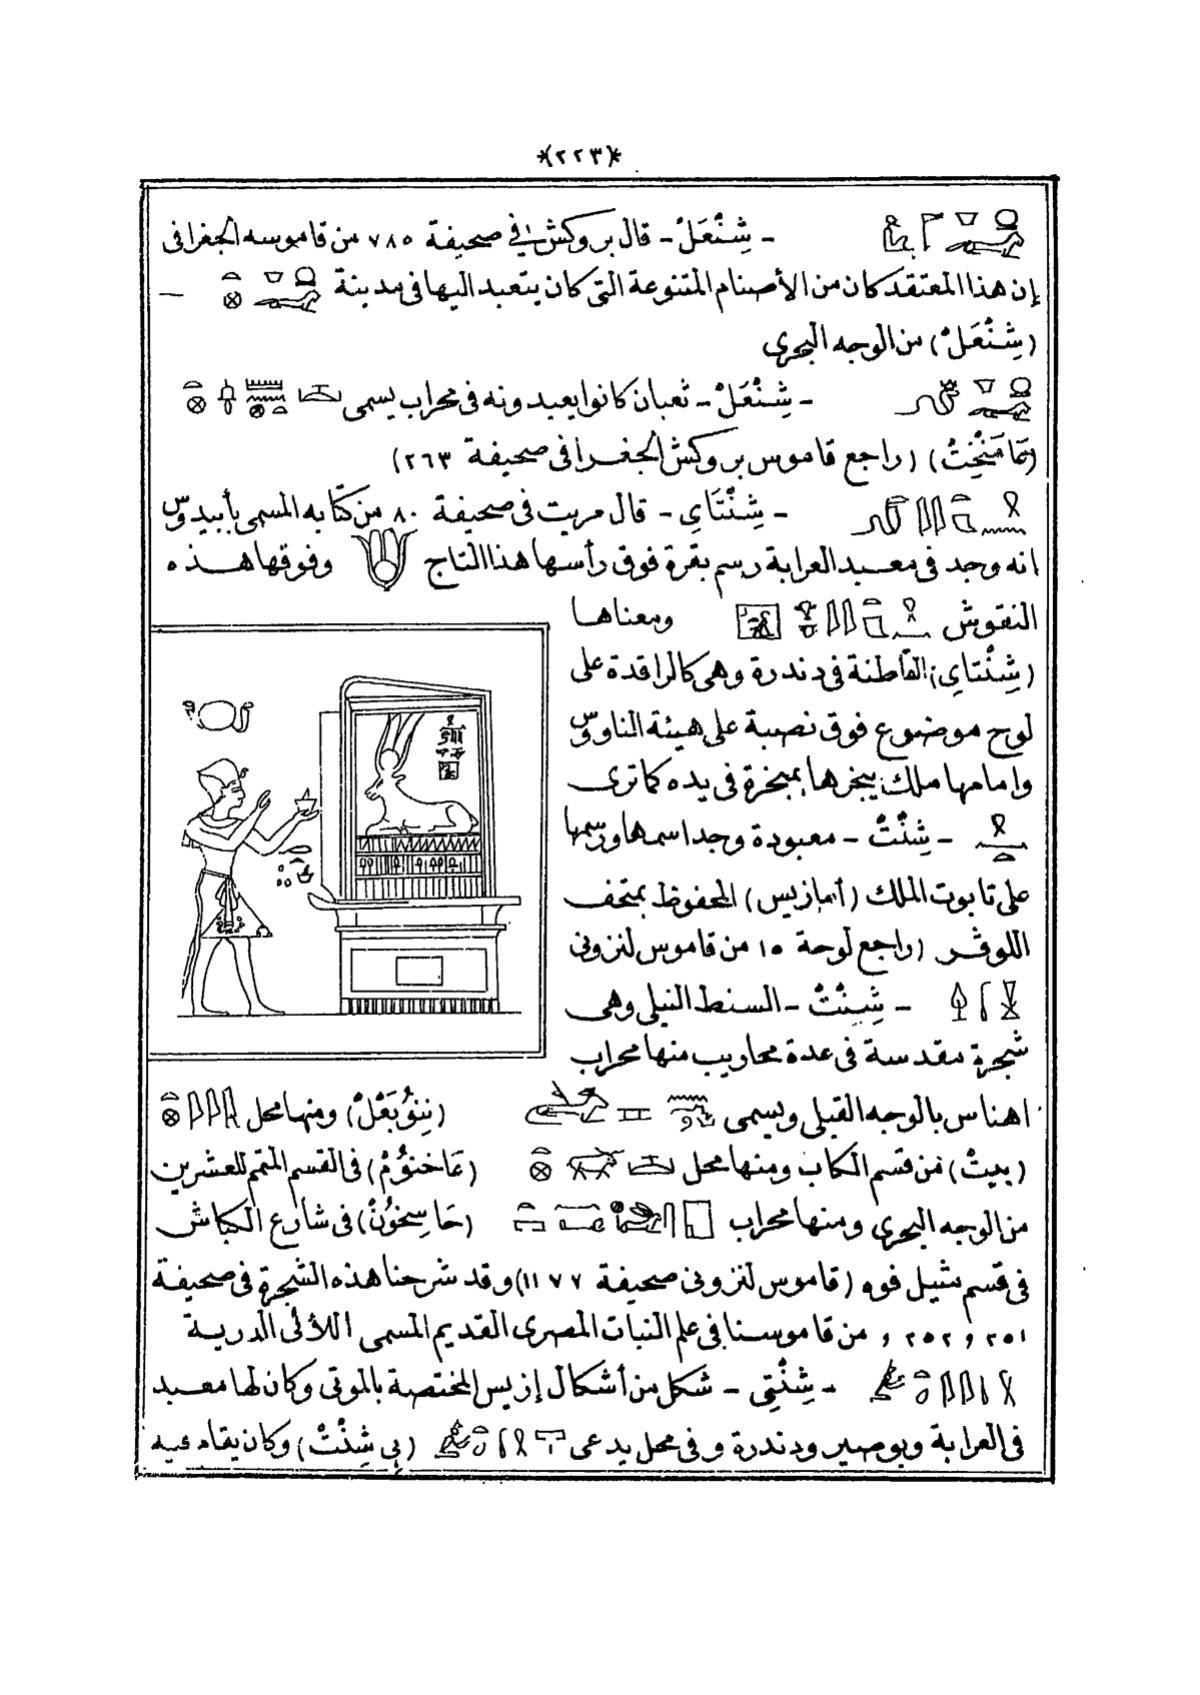 *(٢٢٣)*
- شِنْعَلْ - قال بروكش في صحيفة ٧٨٥ من قاموسه الجغرافى
إن هذا المعتقد كان من الأصنام المتنوعة التى كان يتعبد اليها فى مدينة -
(شِنْعَلْ) من الوجه البحرى
- شِنْعَلْ - ثعبان كانوا يعبدونه فى محراب يسمى
(راجع قاموس بروكش الجغرافى صحيفة ٢٦٣)
- شِنْتَاىِ - قال مريت فى صحيفة ٨٠ من كتابه المسمى بأبيدوّس
انه وجد فى معبد العرابة رسم بقرة فوق رأسها هذا التاج وفوقها هذه
النقوش ومعناها
(شِنْتاىِ) القاطنة فى دندرة وهى كالراقدة على
لوح موضوع فوق نصبة على هيئة الناووّس
وامامها ملك يبخرها بمبخرة فى يده كما ترى
- شِنْتْ - معبودة وجد اسمها ورسمها
على تابوت الملك (أمازيس) المحفوظ بمتحف
اللوڤر (راجع لوحة ١٥ من قاموس لنزونى
- شِنِتْ - السنط النيلى وهى
شجرة مقدسة فى عدة محاريب منها محراب
اهناس بالوجه القبلى ويسمى (نِنُوبَعْلْ) ومنها محل
(بيتْ) من قسم الكاب ومنها محل (عَاخنُومْ) فى القسم المتمم للعشرين
من الوجه البحرى ومنها محراب (حَاسِخُونْ) فى شارع الكباش
فى قسم مثيل فوه (قاموس لنزونى صحيفة ١١٧٧) وقد شرحنا هذه الشجرة فى صحيفة
٢٥١ و ٢٥٢ و من قاموسنا فى علم النبات المصرى القديم المسمى اللآلئ الدرية
- شِنْتِى - شكل من أشكال إزيس المختصة بالموتى وكان لها معبد
فى العرابة وبوصير ودندرة وفى محل يدعى (بِى شِنْتْ) وكان يقام فيه